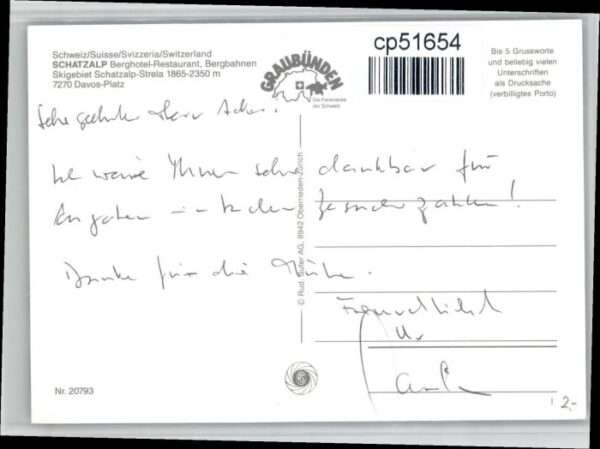 Schweiz/Suisse/Svizzeria/Switzerland
SCHATZALP Berghotel-Restaurant, Bergbahnen
Skigebiet Schatzalp-Strela 1865-2350 m
7270 Davos-Platz
GRAUBÜNDEN
Die Ferienecke
der Schweiz
cp51654
Bis 5 Grussworte
und beliebig vielen
Unterschriften
als Drucksache
(verbilligtes Porto)
Sehr geehrter Herr
Ich wäre Ihnen sehr dankbar für
Angaben zahlen!
Danke für die Mühe.
Freundlichst
Ihr
© Rud. Suter AG, 8942 Oberrieden-Zürich
Nr. 20793
2,-